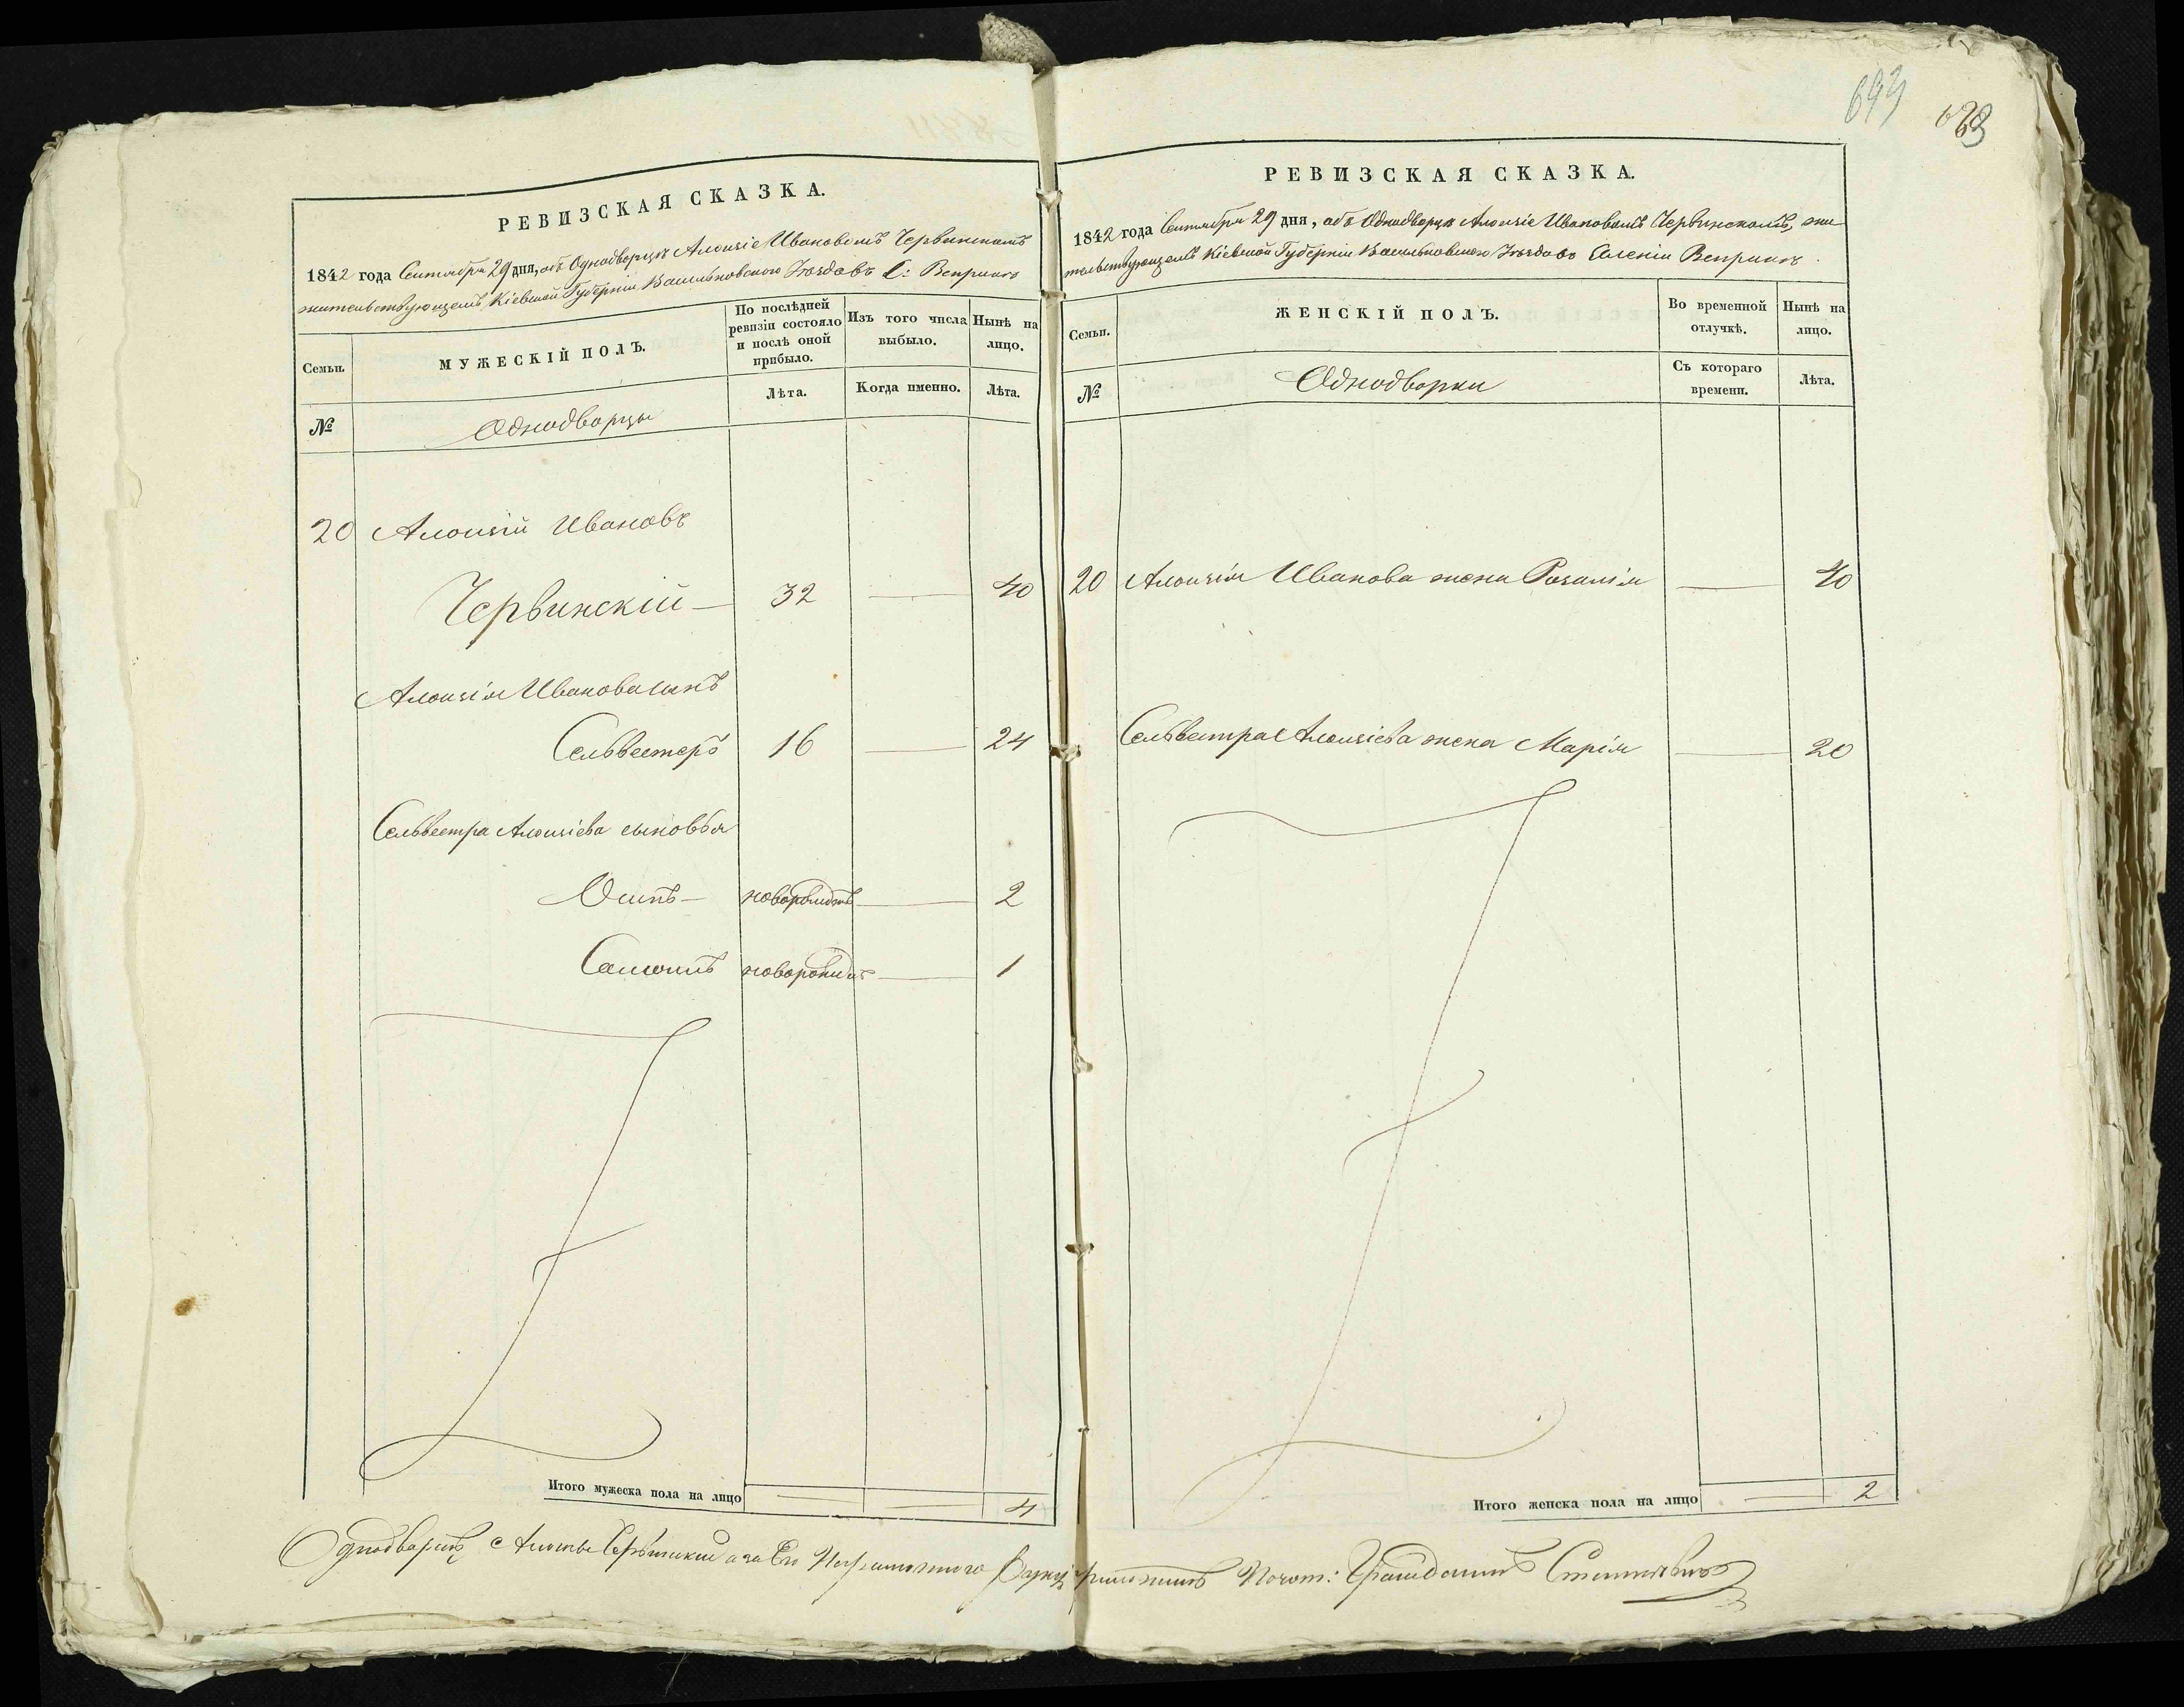 РЕВИЗСКАЯ СКАЗКА.
1842 года Сентября 29 дня, объ Однодворцѣ Алоизіе Ивановомъ Червинскомъ
жительствующемъ Кіевской Губерніи Васильковского Уѣзда въ С: Веприкѣ
Семьи.
МУЖЕСКІЙ ПОЛЪ.
По послѣдней ревизіи состояло и послѣ оной прибыло.
Изъ того числа выбыло.
Нынѣ на лицо.
№
Однодворцы
Лѣта.
Когда именно.
Лѣта.
20 Алоизій Ивановъ
Червинскій — 32 — 40
Алоизія Иванова сынъ
Сельвестеръ 16 — 24
Сельвестра Алоизіева сыновья
Осипъ — новорожден — 2
новорожден — 1
Итого мужеска пола на лицо — — 4
693
РЕВИЗСКАЯ СКАЗКА.
1842 года Сентября 29 дня, объ Однодворцѣ Алоизіе Ивановомъ Червинскомъ, жи
тельствующемъ Кіевской Губерніи Васильковского Уѣзда во Селеніи Веприкѣ.
Семьи.
ЖЕНСКІЙ ПОЛЪ.
Во временной отлучкѣ.
Нынѣ на лицо.
№
Однодворки
Съ котораго времени.
Лѣта.
20 Алоизія Иванова жена Розалія — 40
Сельвестра Алоизіева жена Марія — 20
Итого женска пола на лицо — 2
Однодворецъ Алоизы Червинский а за Его Неграмотного Руку приложилъ Почот: Гражданинъ